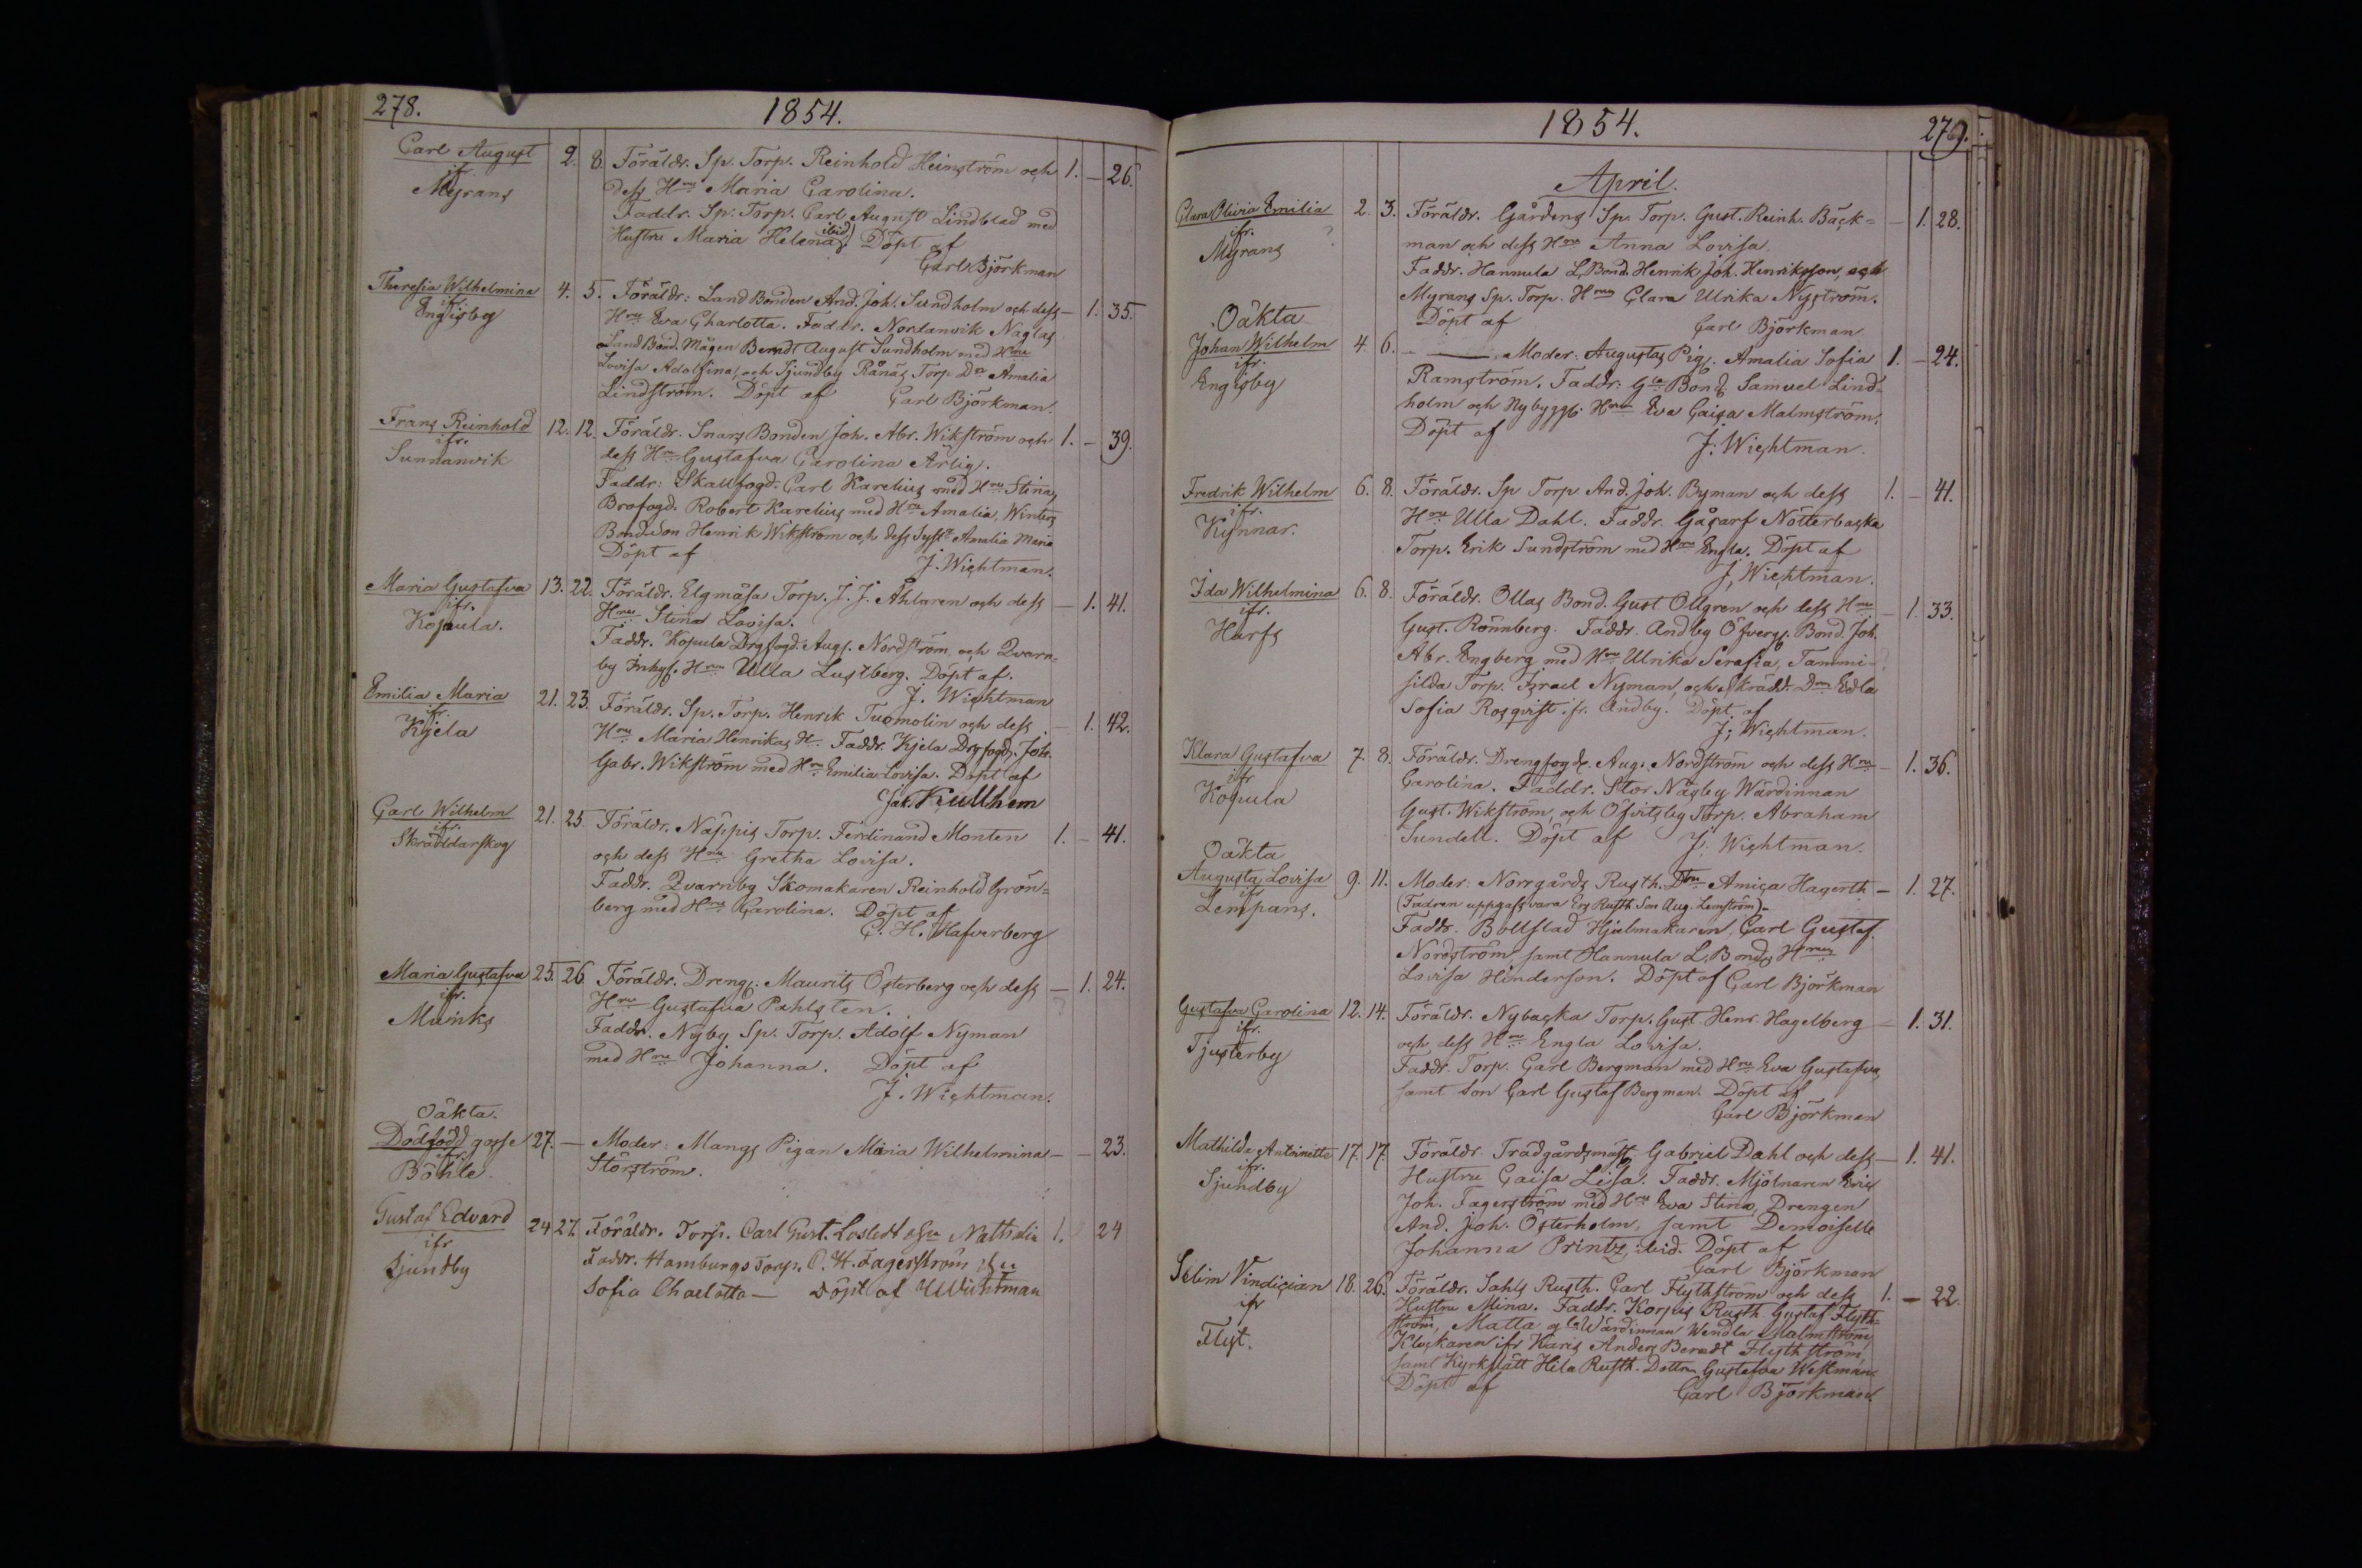 278.
1854.
Carl August 2. 8. Föräldr. Sp. Torp. Reinhold Heinström och 1. – 26.
ifr. dess Hru Maria Carolina.
Myrans Faddr. Sp. Torp. Carl August Lindblad med
Hustru Maria Helena (ibid). Döpt af
Carl Björkman
Theresia Wilhelmina 4. 5. Föräldr: Land Bonden And. Joh. Sundholm och dess – 1. 35.
ifr. Hru Eva Charlotta. Faddr. Norlanvik Naglas
Engisby Land Bond. Mågen Berndt August Sundholm med Hru
Lovisa Adolfina, och Sjundby Rånäs Torp. Dr Amalia
Lindström. Döpt af Carl Björkman.
Frans Reinhold 12. 12. Föräldr. Snars Bonden Joh. Abr. Wikström och 1. – 39.
ifr. dess Hru Gustafva Carolina Ärlig.
Sunnanvik Faddr: Skallfogd. Carl Karelius med Hru Stina,
Brofogd. Robert Karelius med Hru Amalia, Winters
Bondeson Henrik Wikström och dess Syst. Amalia Maria
Döpt af J. Wichtman.
Maria Gustafva 13. 22. Föräldr. Elgmåsa Torp. J. J. Åhlgren och dess – 1. 41.
ifr. Hru Stina Lovisa.
Kopula. Faddr. Kopula Drgfogd. Aug. Nordström och Qvarn-
by Inhys. Hru Ulla Lustberg. Döpt af.
J. Wichtman
Emilia Maria 21. 23. Föräldr. Sp. Torp. Henrik Tuomolin och dess – 1. 42.
ifr. Hru Maria Henrikas Hr. Faddr. Kjela Drgfogd. Joh.
Kjela Gabr. Wikström med Hru Emilia Lovisa. Döpt af
Jak. Kullhem
Carl Wilhelm 21. 25. Föräldr. Näppis Torp. Ferdinand Monten 1. – 41.
ifr. och dess Hru Gretha Lovisa.
Skräddarskog Faddr. Qvarnby Skomakaren Reinhold Grön-
berg med Hru Carolina. Döpt af
C. H. Hafverberg
Maria Gustafva 25. 26. Föräldr. Dreng. Maurits Österberg och dess – 1. 24.
ifr. Hru Gustafva Pahlsten.
Munks Faddr. Nyby Sp. Torp. Adolf Nyman
med Hru Johanna. Döpt af
J. Wichtman.
Oäkta.
Dödfödd gosse 27. – Moder: Mangs Pigan Maria Wilhelmina – – 23.
ifr. Störström.
Böhle.
Gustaf Edvard 24 27. Föräldr. Torp. Carl Gust. Lostedt Hu Nathalia 1. 24
ifr Faddr. Hamburgs Torp. C. H. Fagerström Hu
Sjundby Sofia Charlotta – Döpt af Wichtman
1854.
279.
April.
Clara Olivia Emilia 2. 3. Föräldr. Gårdens Sp. Torp. Gust. Reinh. Bäck- – 1. 28.
ifr. man och dess Hru Anna Lovisa.
Myrans Faddr. Hannula L. Bond. Henrik Joh. Henriksson, och
Myrans Sp. Torp. Hru Clara Ulrika Nyström.
Döpt af Carl Björkman
Oäkta
Johan Wilhelm 4. 6. Moder: Augustas Pig. Amalia Sofia 1. – 24.
ifr Ramström. Faddr: Gla Bond. Samuel Lind-
Engisby holm och Nybygg. Hru Eva Caisa Malmström.
Döpt af J. Wichtman.
Fredrik Wilhelm 6. 8. Föräldr. Sp Torp. And. Joh. Byman och dess 1. – 41.
ifr. Hru Ulla Dahl. Faddr. Gåsarf Nötterbacka
Kynnar. Torp. Erik Sundström med Hru Engla. Döpt af
J. Wichtman.
Ida Wilhelmina 6. 8. Föräldr. Ollas Bond. Gust. Ollgren och dess Hru – 1. 33.
ifr. Gust. Rönnberg. Faddr. Andby Öfverg. Bond. Joh.
Harfs Abr. Engberg med Hru Ulrika Serafia, Tammi-
silda Torp. Israel Nyman, och Skrädd. Dr Edla
Sofia Rosqvist ifr. Andby. Döpt af
J. Wichtman.
Klara Gustafva 7. 8. Föräldr. Drengfogd. Aug. Nordström och dess Hru – 1. 36.
ifr Carolina. Faddr. Stor Näsby Wärdinnan
Kopula Gust. Wikström, och Öfvitsby Torp. Abraham
Sundell. Döpt af J. Wichtman.
Oäkta
Augusta Lovisa 9. 11. Moder: Norrgårds Rusth. Dtr Amica Hagerth – 1. 27.
ifr (Fadren uppgafs vara Ers Rusth. Son Aug. Lemström).
Lempans. Faddr. Bollstad Hjulmakaren Carl Gustaf
Nordström, samt Hannula L. Bonds Hru
Lovisa Hinderson. Döpt af Carl Björkman
Gustafva Carolina 12. 14. Föräldr. Nybacka Torp. Gust. Henr. Hagelberg – 1. 31.
ifr. och dess Hru Engla Lovisa.
Tjusterby Faddr. Torp. Carl Bergman med Hru Eva Gustafva,
samt son Carl Gustaf Bergman. Döpt af
Carl Björkman
Mathilda Antoinette 17. 17. Föräldr. Trädgårdsmäst. Gabriel Dahl och dess – 1. 41.
ifr. Hustru Caisa Lisa. Faddr. Mjölnaren Eric
Sjundby Joh. Fagerström med Hru Eva Stina, Drengen
And. Joh. Österholm, samt Demoiselle
Johanna Printz, ibid. Döpt af
Carl Björkman
Selim Vindician 18. 26. Föräldr. Sahls Rusth. Carl Flythström och dess 1. – 22.
ifr Hustru Mina. Faddr. Korpus Rusth. Gustaf Flyth-
Flyt. ström, Matta gla Wärdinnan Wendla Malmström,
Klockaren ifr Karis Anders Berndt Flythström,
samt Kyrkslätt Hila Rusth. Dottr. Gustafva Westman.
Döpt af Carl Björkman.